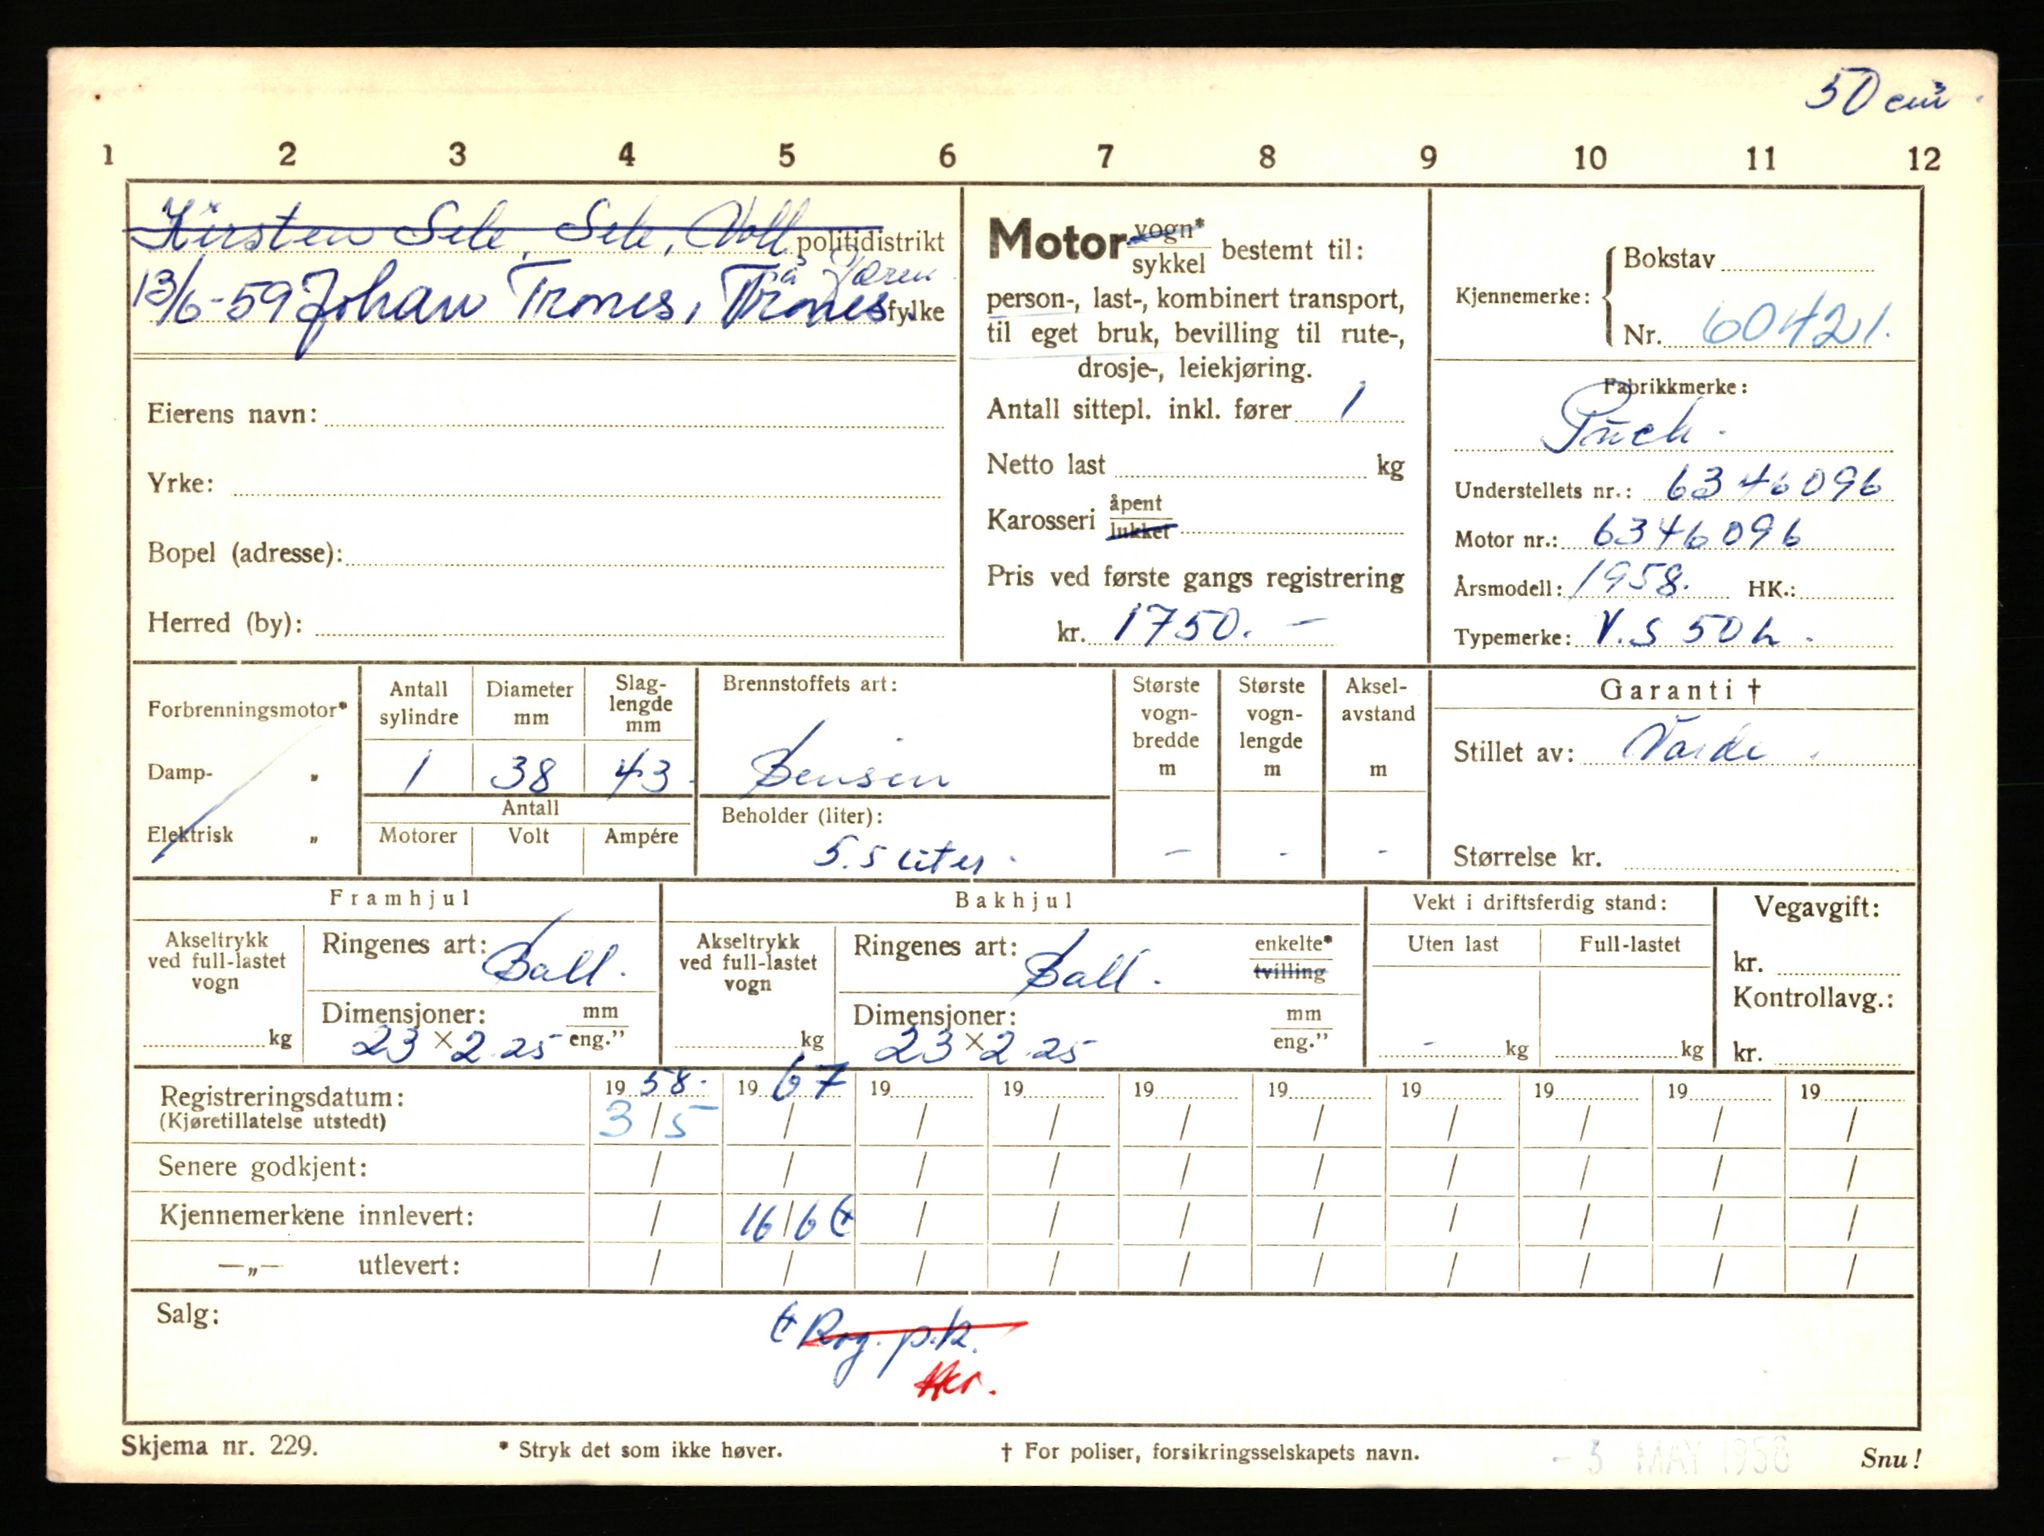 50 cm³
1 2 3 4 5 6 7 8 9 10 11 12
Kirsten Sele, Sele, Voll politidistrikt
på Jæren
13/6-59 Johan Trones, Trones. fylke
Eierens navn:
Yrke:
Bopel (adresse):
Herred (by):
Motor vogn* sykkel bestemt til:
person-, last-, kombinert transport,
til eget bruk, bevilling til rute-,
drosje-, leiekjøring.
Antall sittepl. inkl. fører 1
Netto last kg
Karosseri åpent lukket
Pris ved første gangs registrering
kr. 1750. -
Kjennemerke: Bokstav
Nr. 60421.
Fabrikkmerke:
Puch.
Understellets nr.: 6346096
Motor nr.: 6346096
Årsmodell: 1958. HK.:
Typemerke: V.S 50 L.
Forbrenningsmotor*
Damp- „
Elektrisk „
Antall sylindre Diameter mm Slag-lengde mm
1 38 43.
Antall
Motorer Volt Ampére
Brennstoffets art:
Bensin
Beholder (liter):
5.5 liter.
Største vogn-bredde m
Største vogn-lengde m
Aksel-avstand m
- - -
Garanti †
Stillet av: Varde.
Størrelse kr.
Framhjul
Akseltrykk ved full-lastet vogn
kg
Ringenes art: Ball.
Dimensjoner: mm eng.”
23 × 2.25
Bakhjul
Akseltrykk ved full-lastet vogn
kg
Ringenes art: Ball. enkelte* tvilling
Dimensjoner: mm eng.”
23 × 2.25
Vekt i driftsferdig stand:
Uten last Full-lastet
- kg kg
Vegavgift:
kr.
Kontrollavg.:
kr.
Registreringsdatum: 1958. 1967 19 19 19 19 19 19 19 19
(Kjøretillatelse utstedt) 3/5 / / / / / / / / /
Senere godkjent: / / / / / / / / / /
Kjennemerkene innlevert: / 16/6 / / / / / / / /
—„— utlevert: / / / / / / / / / /
Salg:
Rog. p.k.
Skjema nr. 229. * Stryk det som ikke høver. † For poliser, forsikringsselskapets navn. - 3 MAY 1958 Snu!